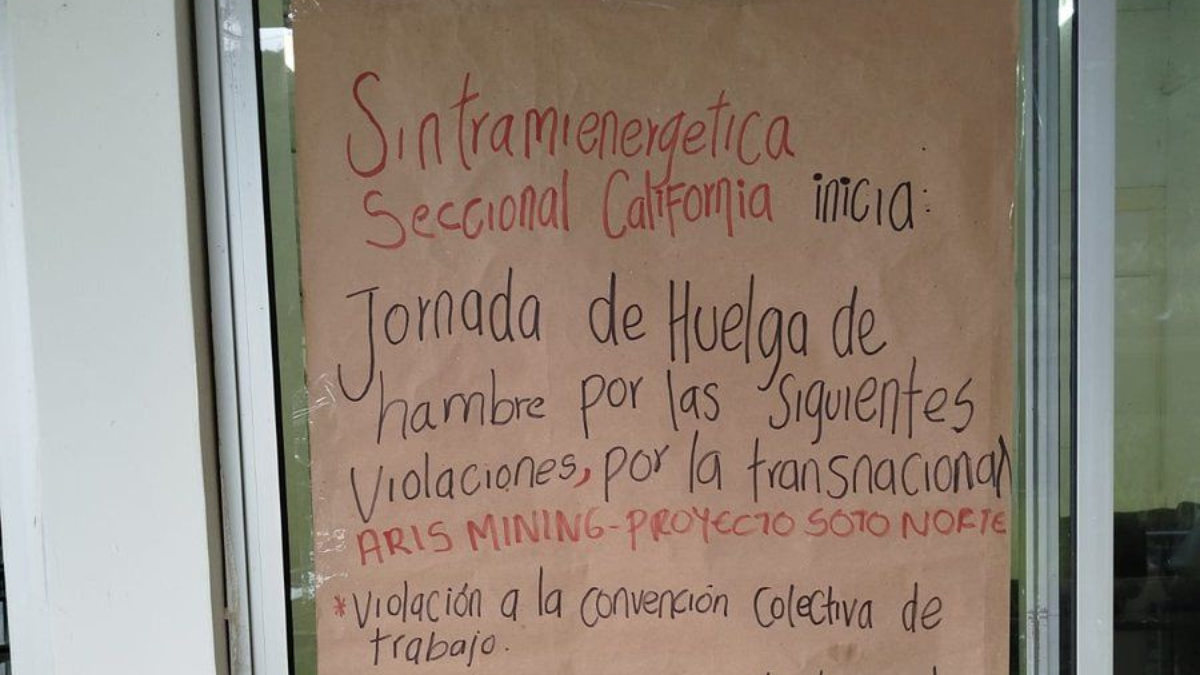 Sintramienergetica
Seccional California inicia:
Jornada de Huelga de
hambre por las siguientes
violaciones, por la transnacional
ARIS MINING-PROYECTO SOTO NORTE
*violación a la convención colectiva de
trabajo.